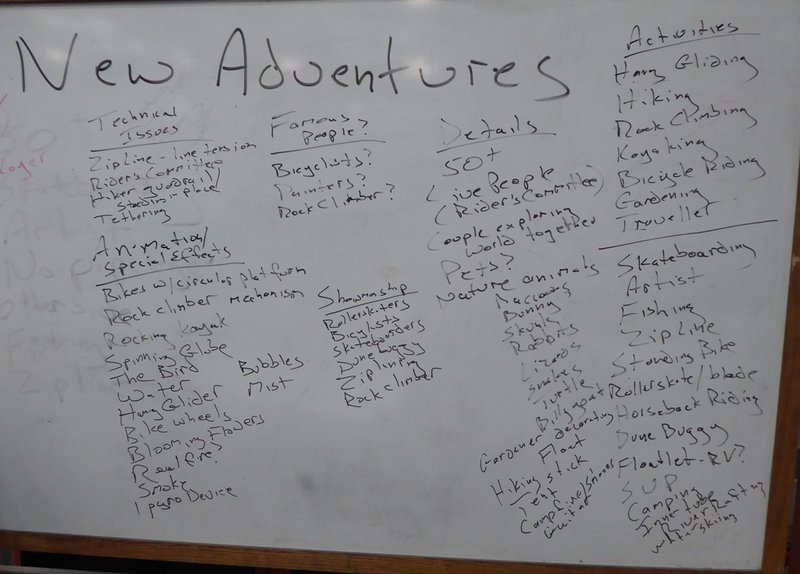 New Adventures
Technical
Issues
ZipLine - line tension
Rider's Committee
Hiker guardrail/
stand in-place
Tethering
Animation/
Special Effects
Bikes w/circular platform
Rock climber mechanism
Rocking Kayak
Spinning Globe
The Bird
Water
Hang Glider
Bike wheels
Blooming Flowers
Real fire?
Smoke
1 pyro Device
Bubbles
Mist
Famous
People?
Bicyclists?
Painters?
Rock Climber?
Showmanship
Rollerskaters
Bicyclists
Skateboarders
Dune buggy
Ziplining
Rock climber
Details
50+
Live People
(Rider's Committee)
Couple exploring
world together
Pets?
Nature animals
Raccoons
Bunny
Skunk
Rabbits
Lizards
Snakes
Turtle
Billy goat
Gardener decorating
Float
Hiking stick
Tent
Campfire/smores
Guitar
Activities
Hang Gliding
Hiking
Rock Climbing
Kayaking
Bicycle Riding
Gardening
Traveller
Skateboarding
Artist
Fishing
ZipLine
Standing Bike
Rollerskate/blade
Horseback Riding
Dune Buggy
Floatlet-RV?
SUP
Camping
Innertube
River Rafting
Waterskiing